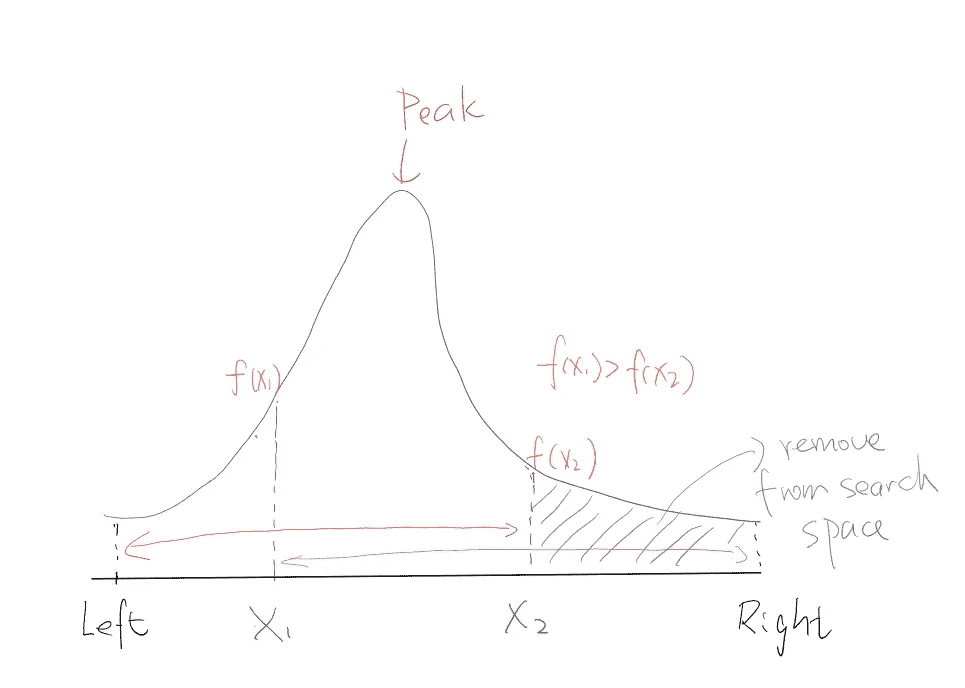 Peak
f(x₁)
f(x₁)>f(x₂)
f(x₂)
remove
from search
space
Left
X₁
X₂
Right